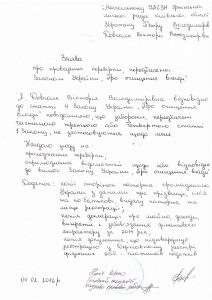 Начальнику УДАЗН
Довгань Вікторії Володимирівни
Заява
про проведення перевірки, передбаченої
Законом України „Про очищення влади"
Я, Довгань Вікторія Володимирівна відповідно
до статті 4 Закону України „Про очищення
влади" повідомляю, що заборони, передбачені
частиною третьою або четвертою статті
1 Закону, не застосовуються щодо мене.
Надаю згоду на:
проходження перевірки;
оприлюднення відомостей щодо мене відповідно
до вимог Закону України „Про очищення влади".
Додатки: копії сторінок паспорта громадянина
України з даними про прізвище, ім'я
та по батькові, видачу паспорта та
місце реєстрації;
копія декларації про майно, доходи,
витрати і зобов'язання фінансового
характеру за 2015 рік;
копія документа, що підтверджує
реєстрацію у Державному реєстрі
фізичних осіб - платників податків
04.01.2016р.